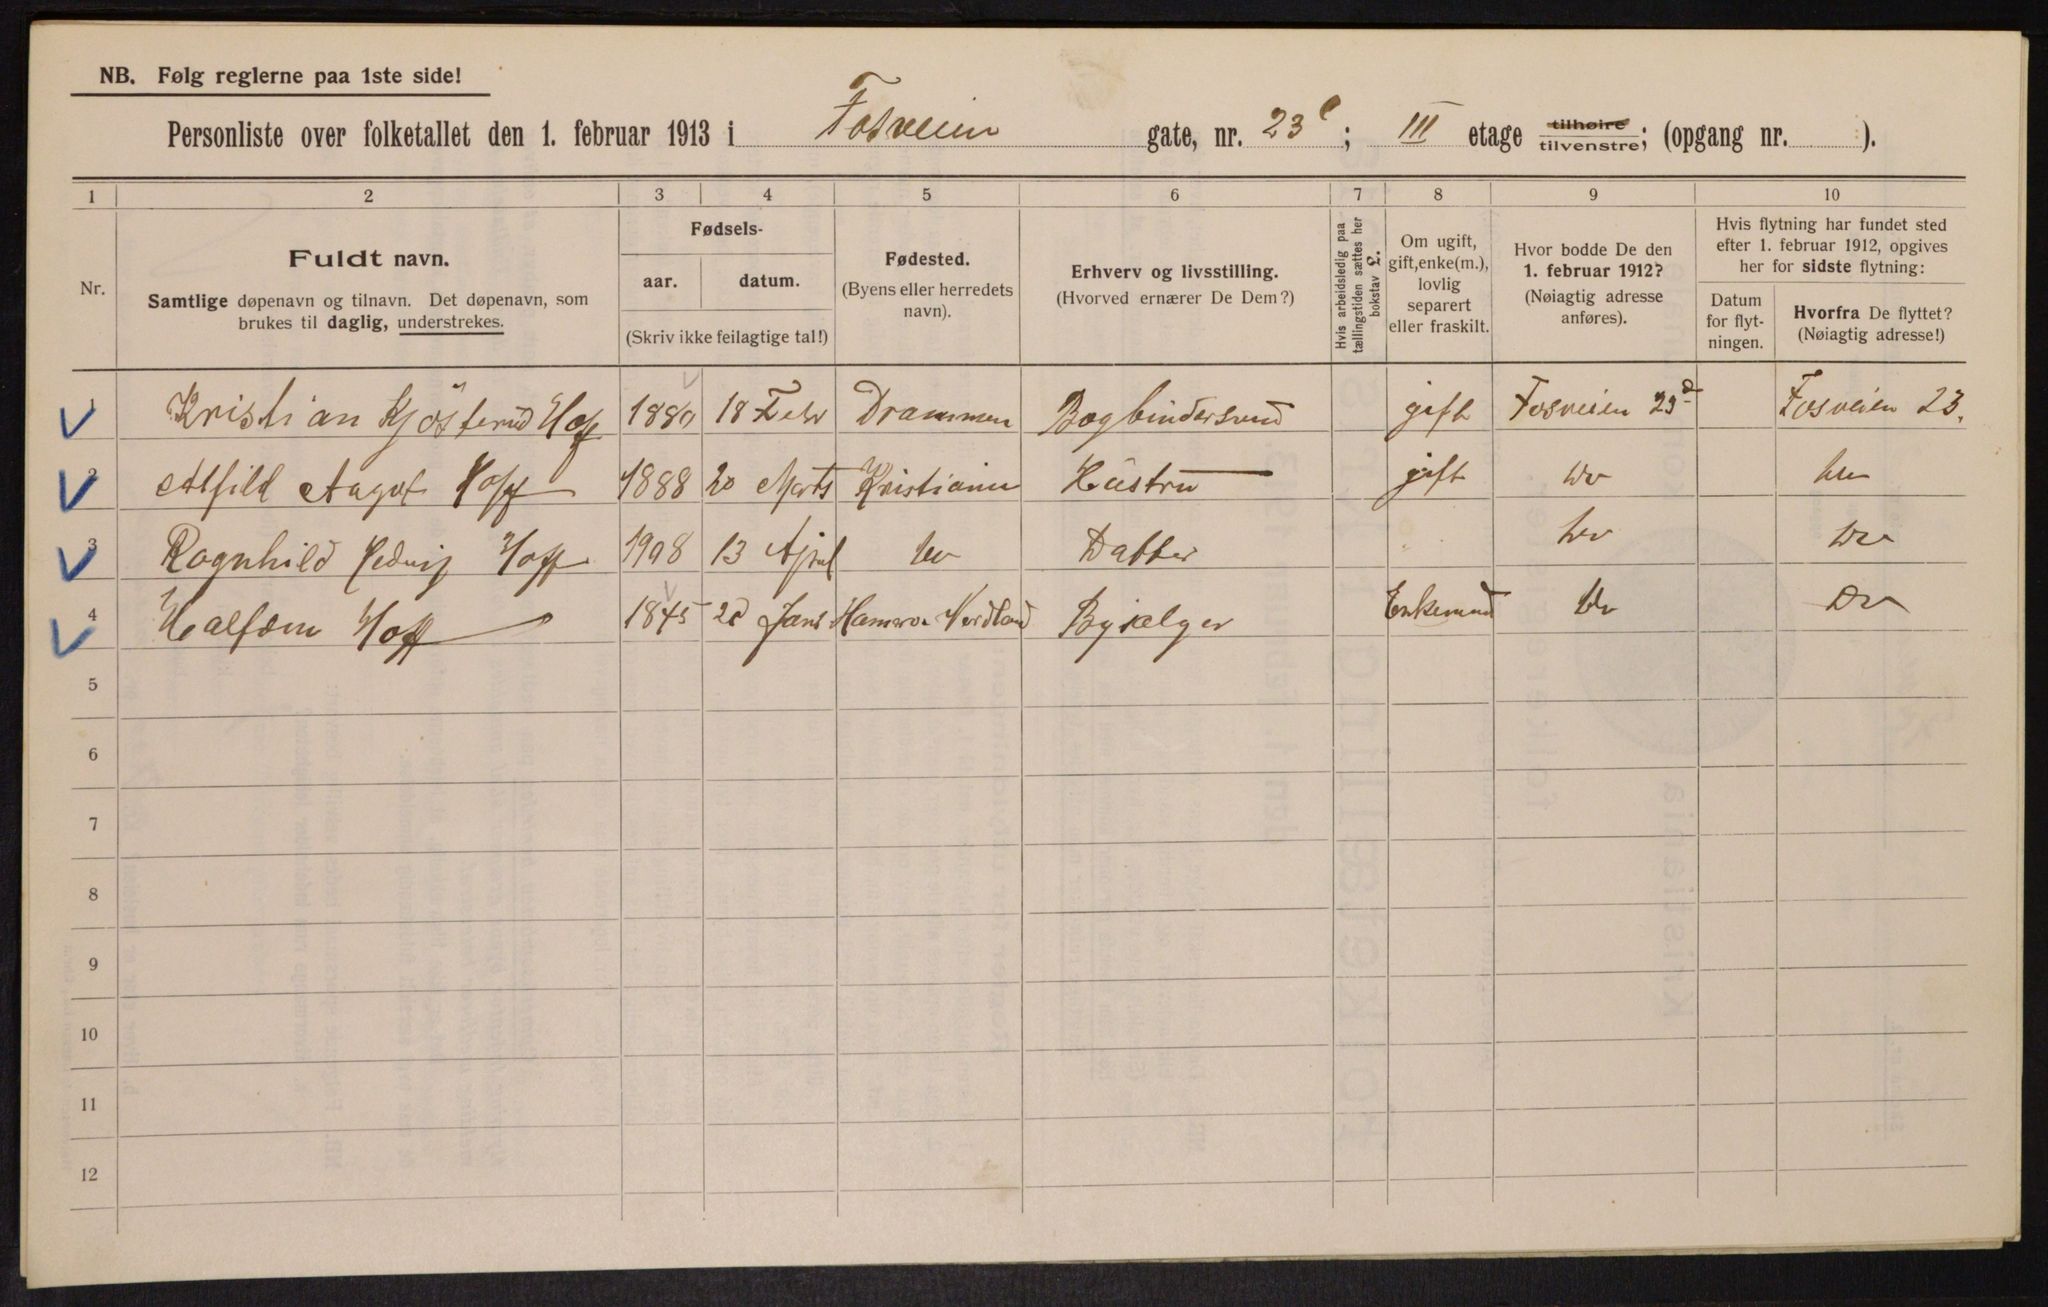 NB. Følg reglerne paa 1ste side!
Personliste over folketallet den 1. februar 1913 i Fosveien gate, nr. 23c; III etage tilhøire tilvenstre; (opgang nr. ).
1 2 3 4 5 6 7 8 9 10
Nr.
Fuldt navn.
Samtlige døpenavn og tilnavn. Det døpenavn, som
brukes til daglig, understrekes.
Fødsels-
aar. datum.
(Skriv ikke feilagtige tal!)
Fødested.
(Byens eller herredets
navn).
Erhverv og livsstilling.
(Hvorved ernærer De Dem?)
Hvis arbeidsledig paa
tællingstiden sættes her
bokstav L.
Om ugift,
gift, enke(m.),
lovlig
separert
eller fraskilt.
Hvor bodde De den
1. februar 1912?
(Nøiagtig adresse
anføres).
Hvis flytning har fundet sted
efter 1. februar 1912, opgives
her for sidste flytning:
Datum
for flyt-
ningen.
Hvorfra De flyttet?
(Nøiagtig adresse!)
1 Kristian Kjösterud Hoff 1880 18 Febr Drammen Bogbindersvend gift Fosveien 23d Fosveien 23.
2 Alfild Aagot Hoff 1888 20 Marts Kristiania Hüstru gift do do
3 Ragnhild Hedvig Hoff 1908 13 April do Datter do do
4 Halfdan Hoff 1845 20 Jans Hamerø Nordland Enkemand do do
5
6
7
8
9
10
11
12